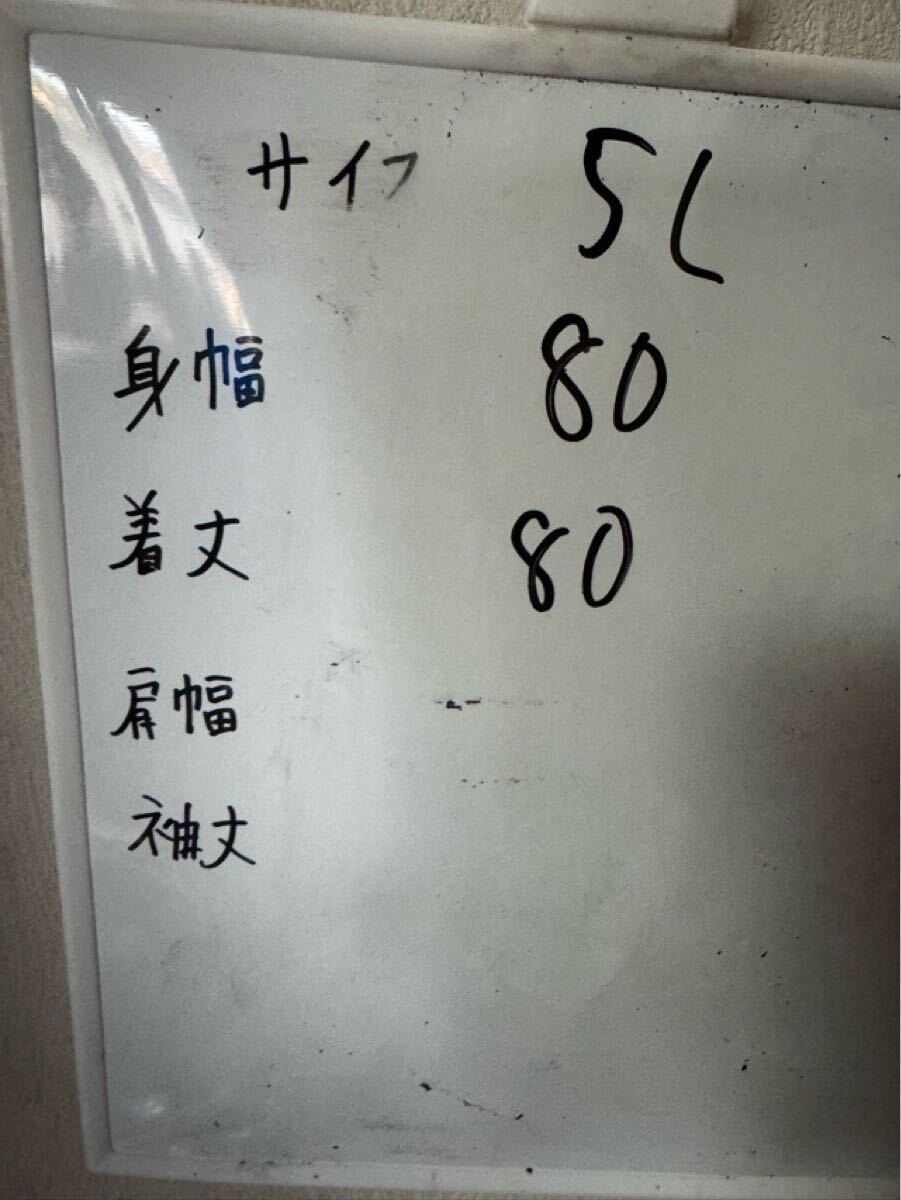 サイフ 5L
身幅 80
着丈 80
肩幅
袖丈